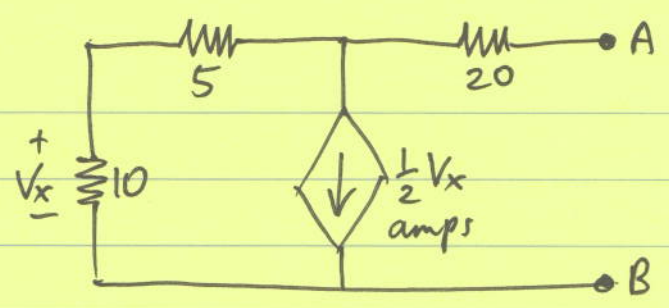 A
5
20
+
Vx
−
10
1/2 Vx
amps
B